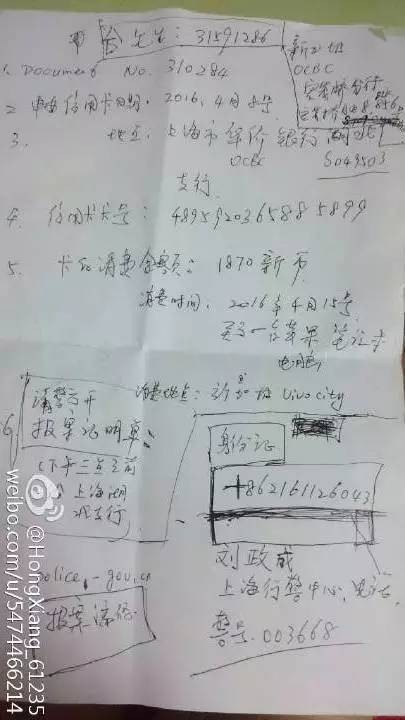 先生: 31591286
新加坡
OCBC
1. Document No. 310284
2 申请信用卡日期. 2016, 4月8号
3. 地点. 上海市华侨银行闸北
OCBC
S049503
支行.
4. 信用卡卡号: 4895920365885899
5. 卡已消费金额: 1870新币
消费时间. 2016年4月15号
买了一台苹果笔记本
电脑
消费地点: 新加坡 Vivocity
请警方开
报案证明单
(下午三点之前
上海闸
北支行)
身份证
+862161126043
刘政成
上海行警中心, 电话,
警号. 003668
police.-gov.cn
报案
@HongXiang_61235
weibo.com/u/5474466214